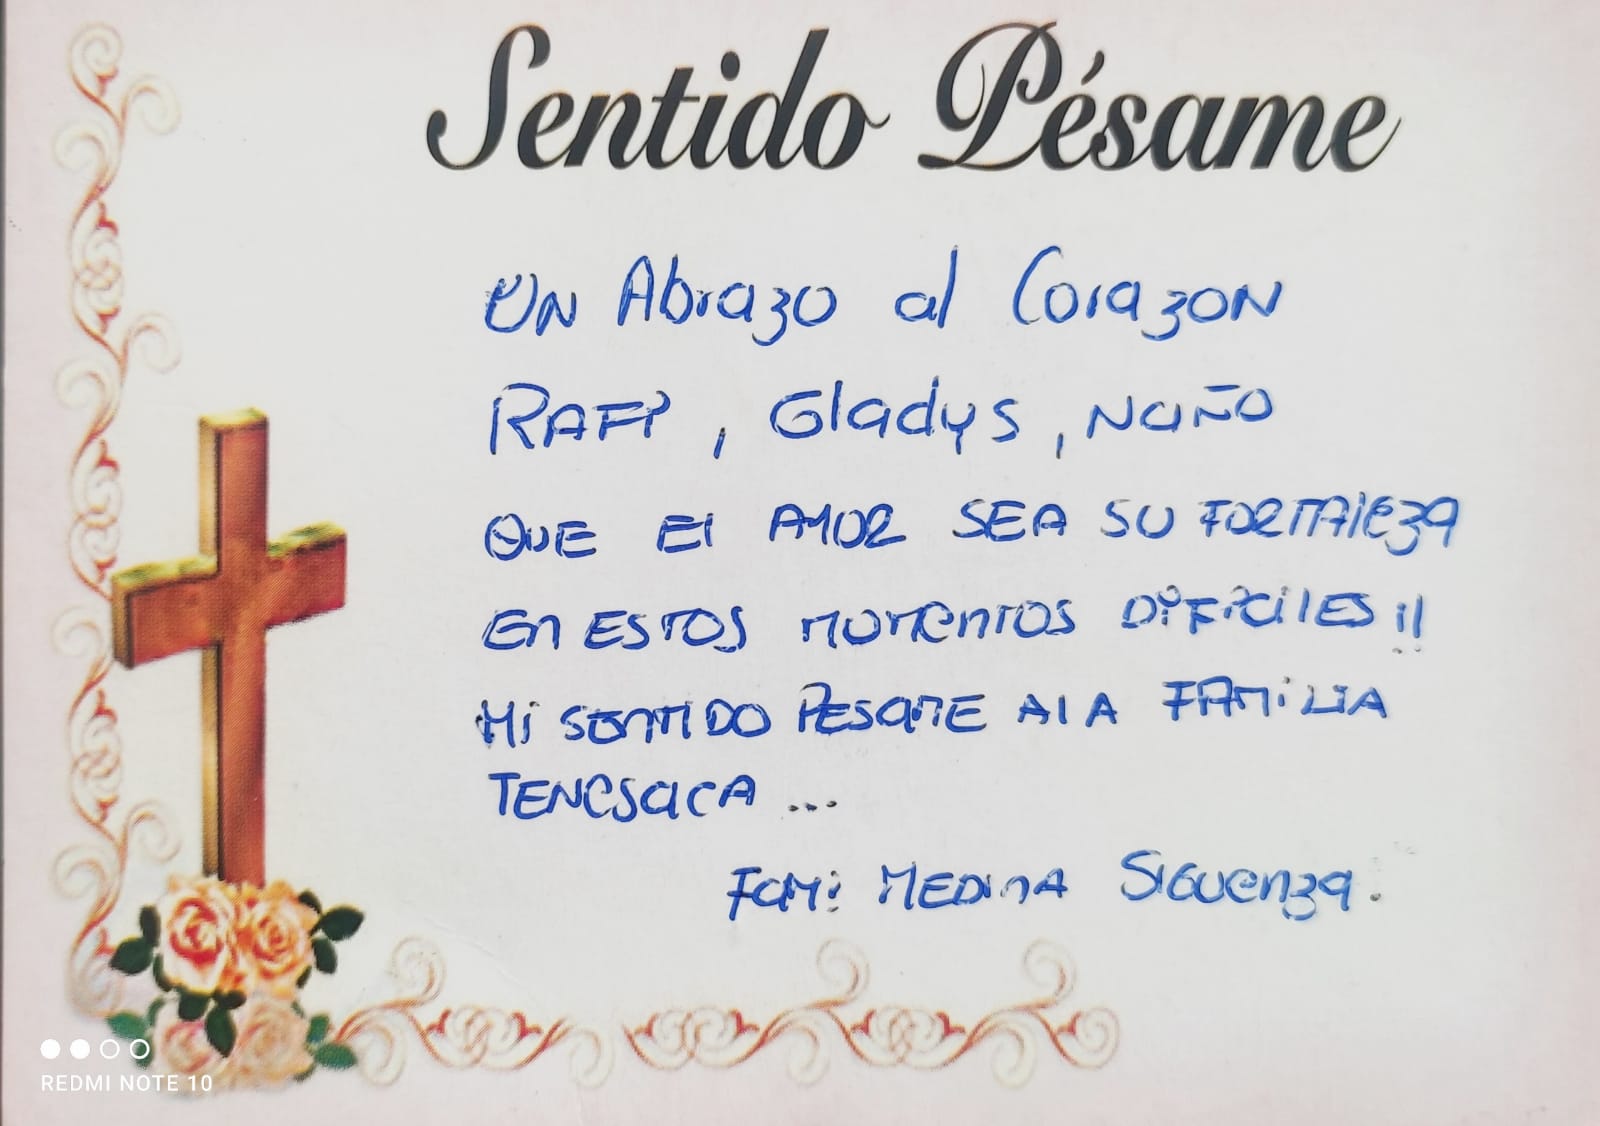 Sentido Pésame
UN Abrazo al Corazon
RAFY, Gladys, NAÑO
QUE El AMOR SEA SU FORTAleza
En ESTOS MOMentos DiFiciles !!
Mi SENTIDO PESAME A lA FAMiLIA
TENESACA ...
FAM: MEDINA SIGUENZA.
REDMI NOTE 10